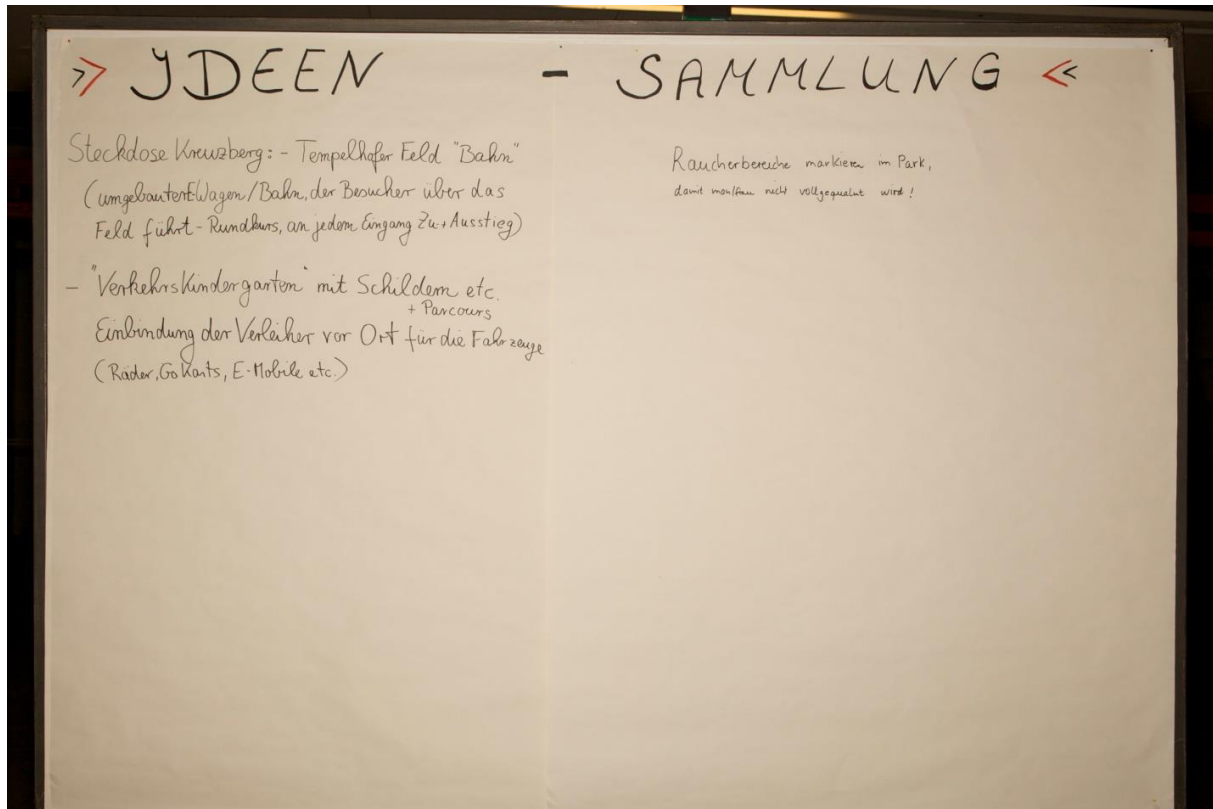 » JDEEN - SAMMLUNG «
Steckdose Kreuzberg: - Tempelhofer Feld "Bahn"
(umgebauter E-Wagen/Bahn, der Besucher über das
Feld führt - Rundkurs, an jedem Eingang Zu- + Ausstieg)
- "Verkehrskindergarten" mit Schildern etc.
+ Parcours
Einbindung der Verleiher vor Ort für die Fahrzeuge
(Räder, GoKarts, E-Mobile etc.)
Raucherbereiche markieren im Park,
damit man/frau nicht vollgequalmt wird!